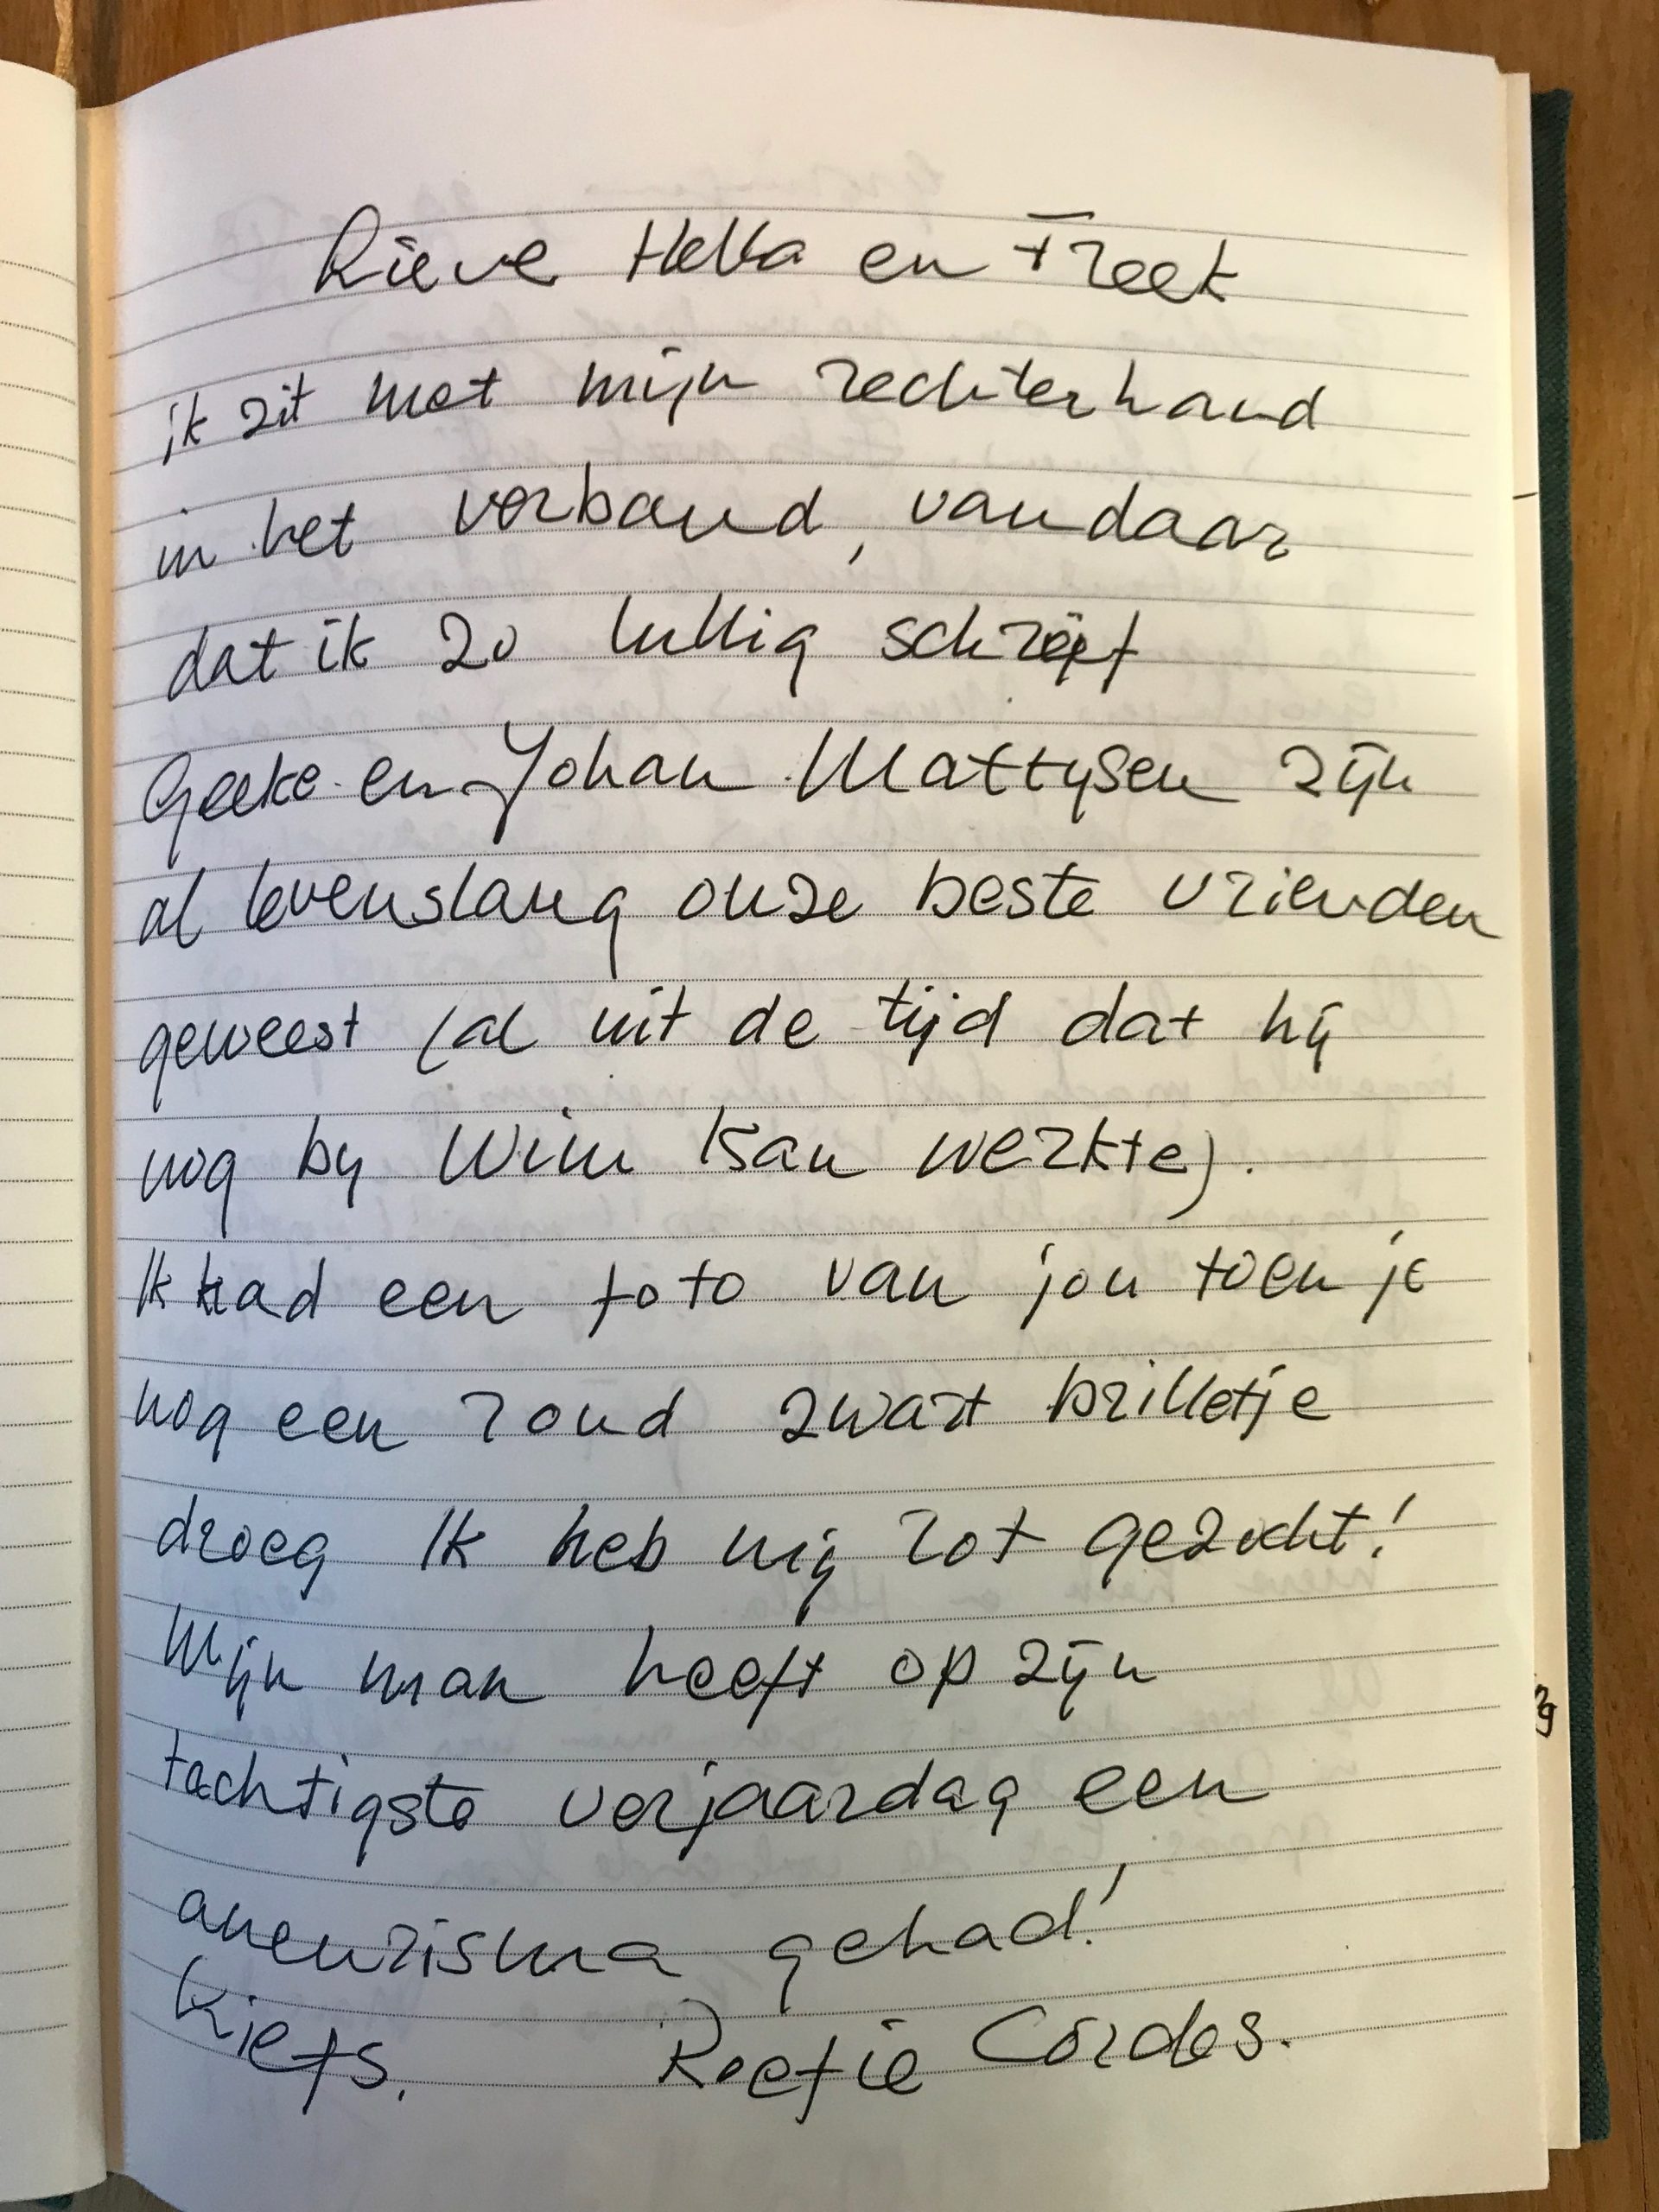 Lieve Hella en Freek
ik zit met mijn rechterhand
in het verband, vandaar
dat ik zo lullig schrijf
Geeke en Johan Mattysen zijn
al levenslang onze beste vrienden
geweest (al uit de tijd dat hij
nog by Wim Kan werkte).
Ik had een foto van jou toen je
nog een rond zwart brilletje
droeg Ik heb mij rot gezocht!
Mijn man heeft op zijn
tachtigste verjaardag een
aneurisma gehad!
Kiefs. Roefie Cordes.